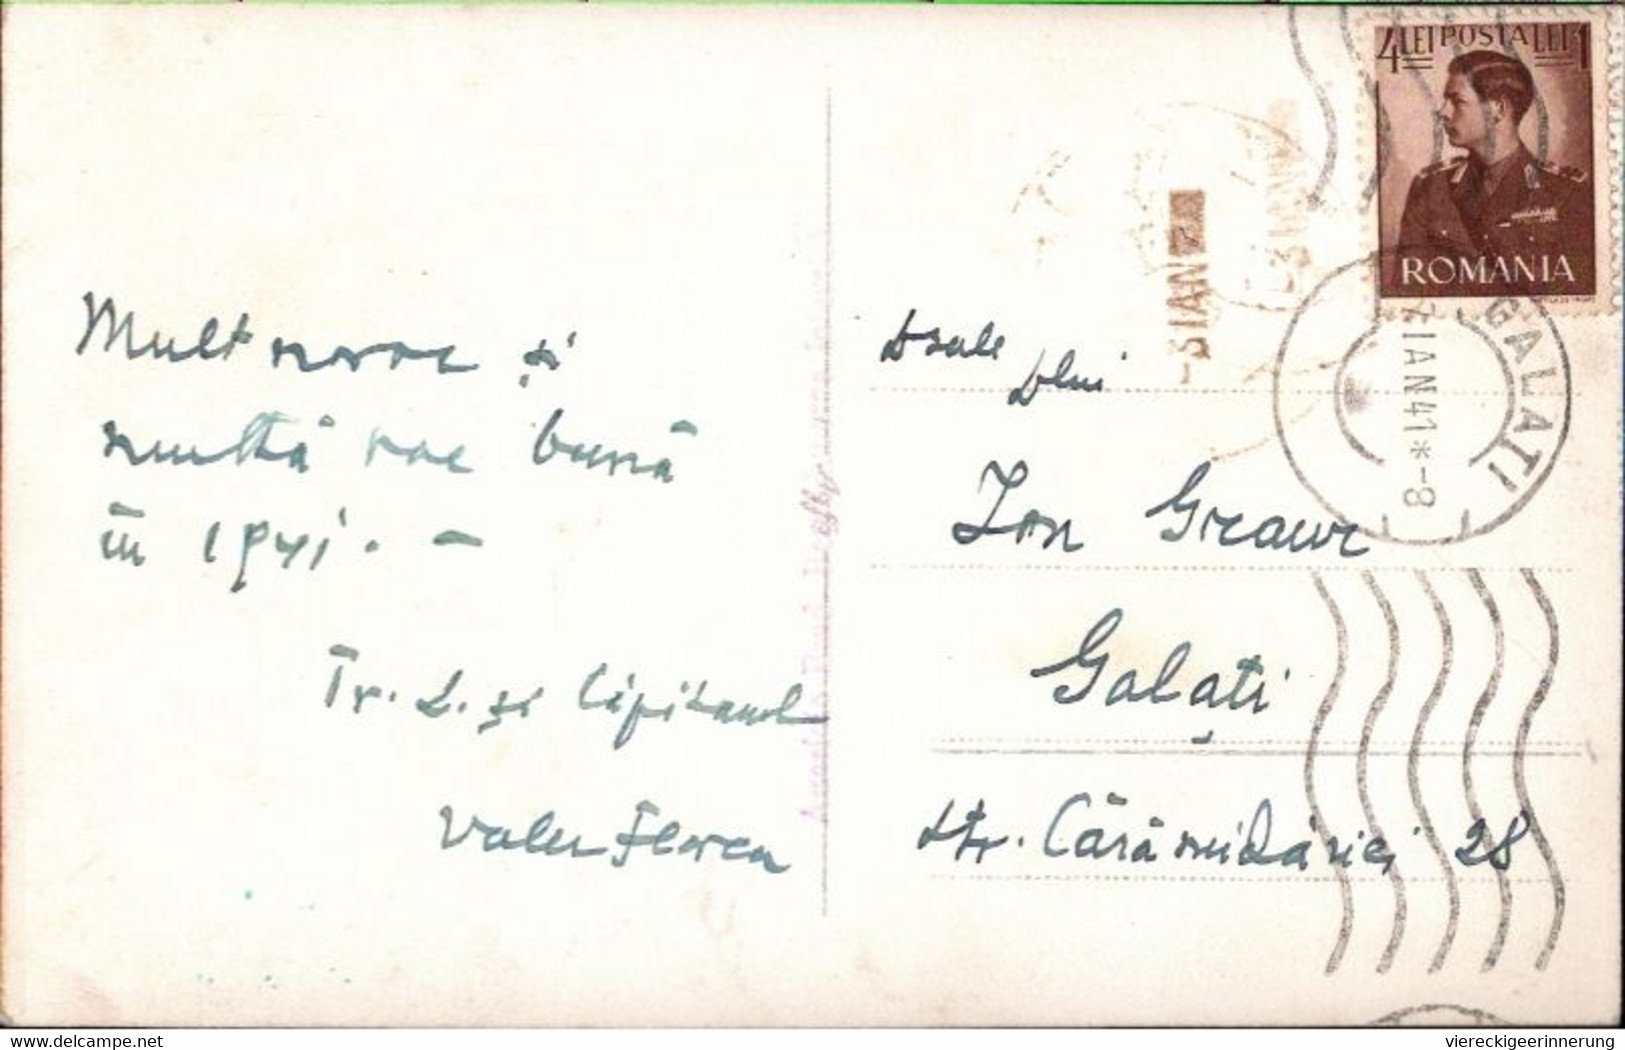 Mult noroc și
multă voe bună
în 1941. —
Tr. L. și Căpitanul
Valer Florea
4 LEI POSTA LEI 1
ROMANIA
GALATI
IAN 41 * -8
-3 IAN
Dsale
Dlui
Ion Graur
Galați
str. Cărămidărici 28
delcampe.net
viereckigeerinnerung